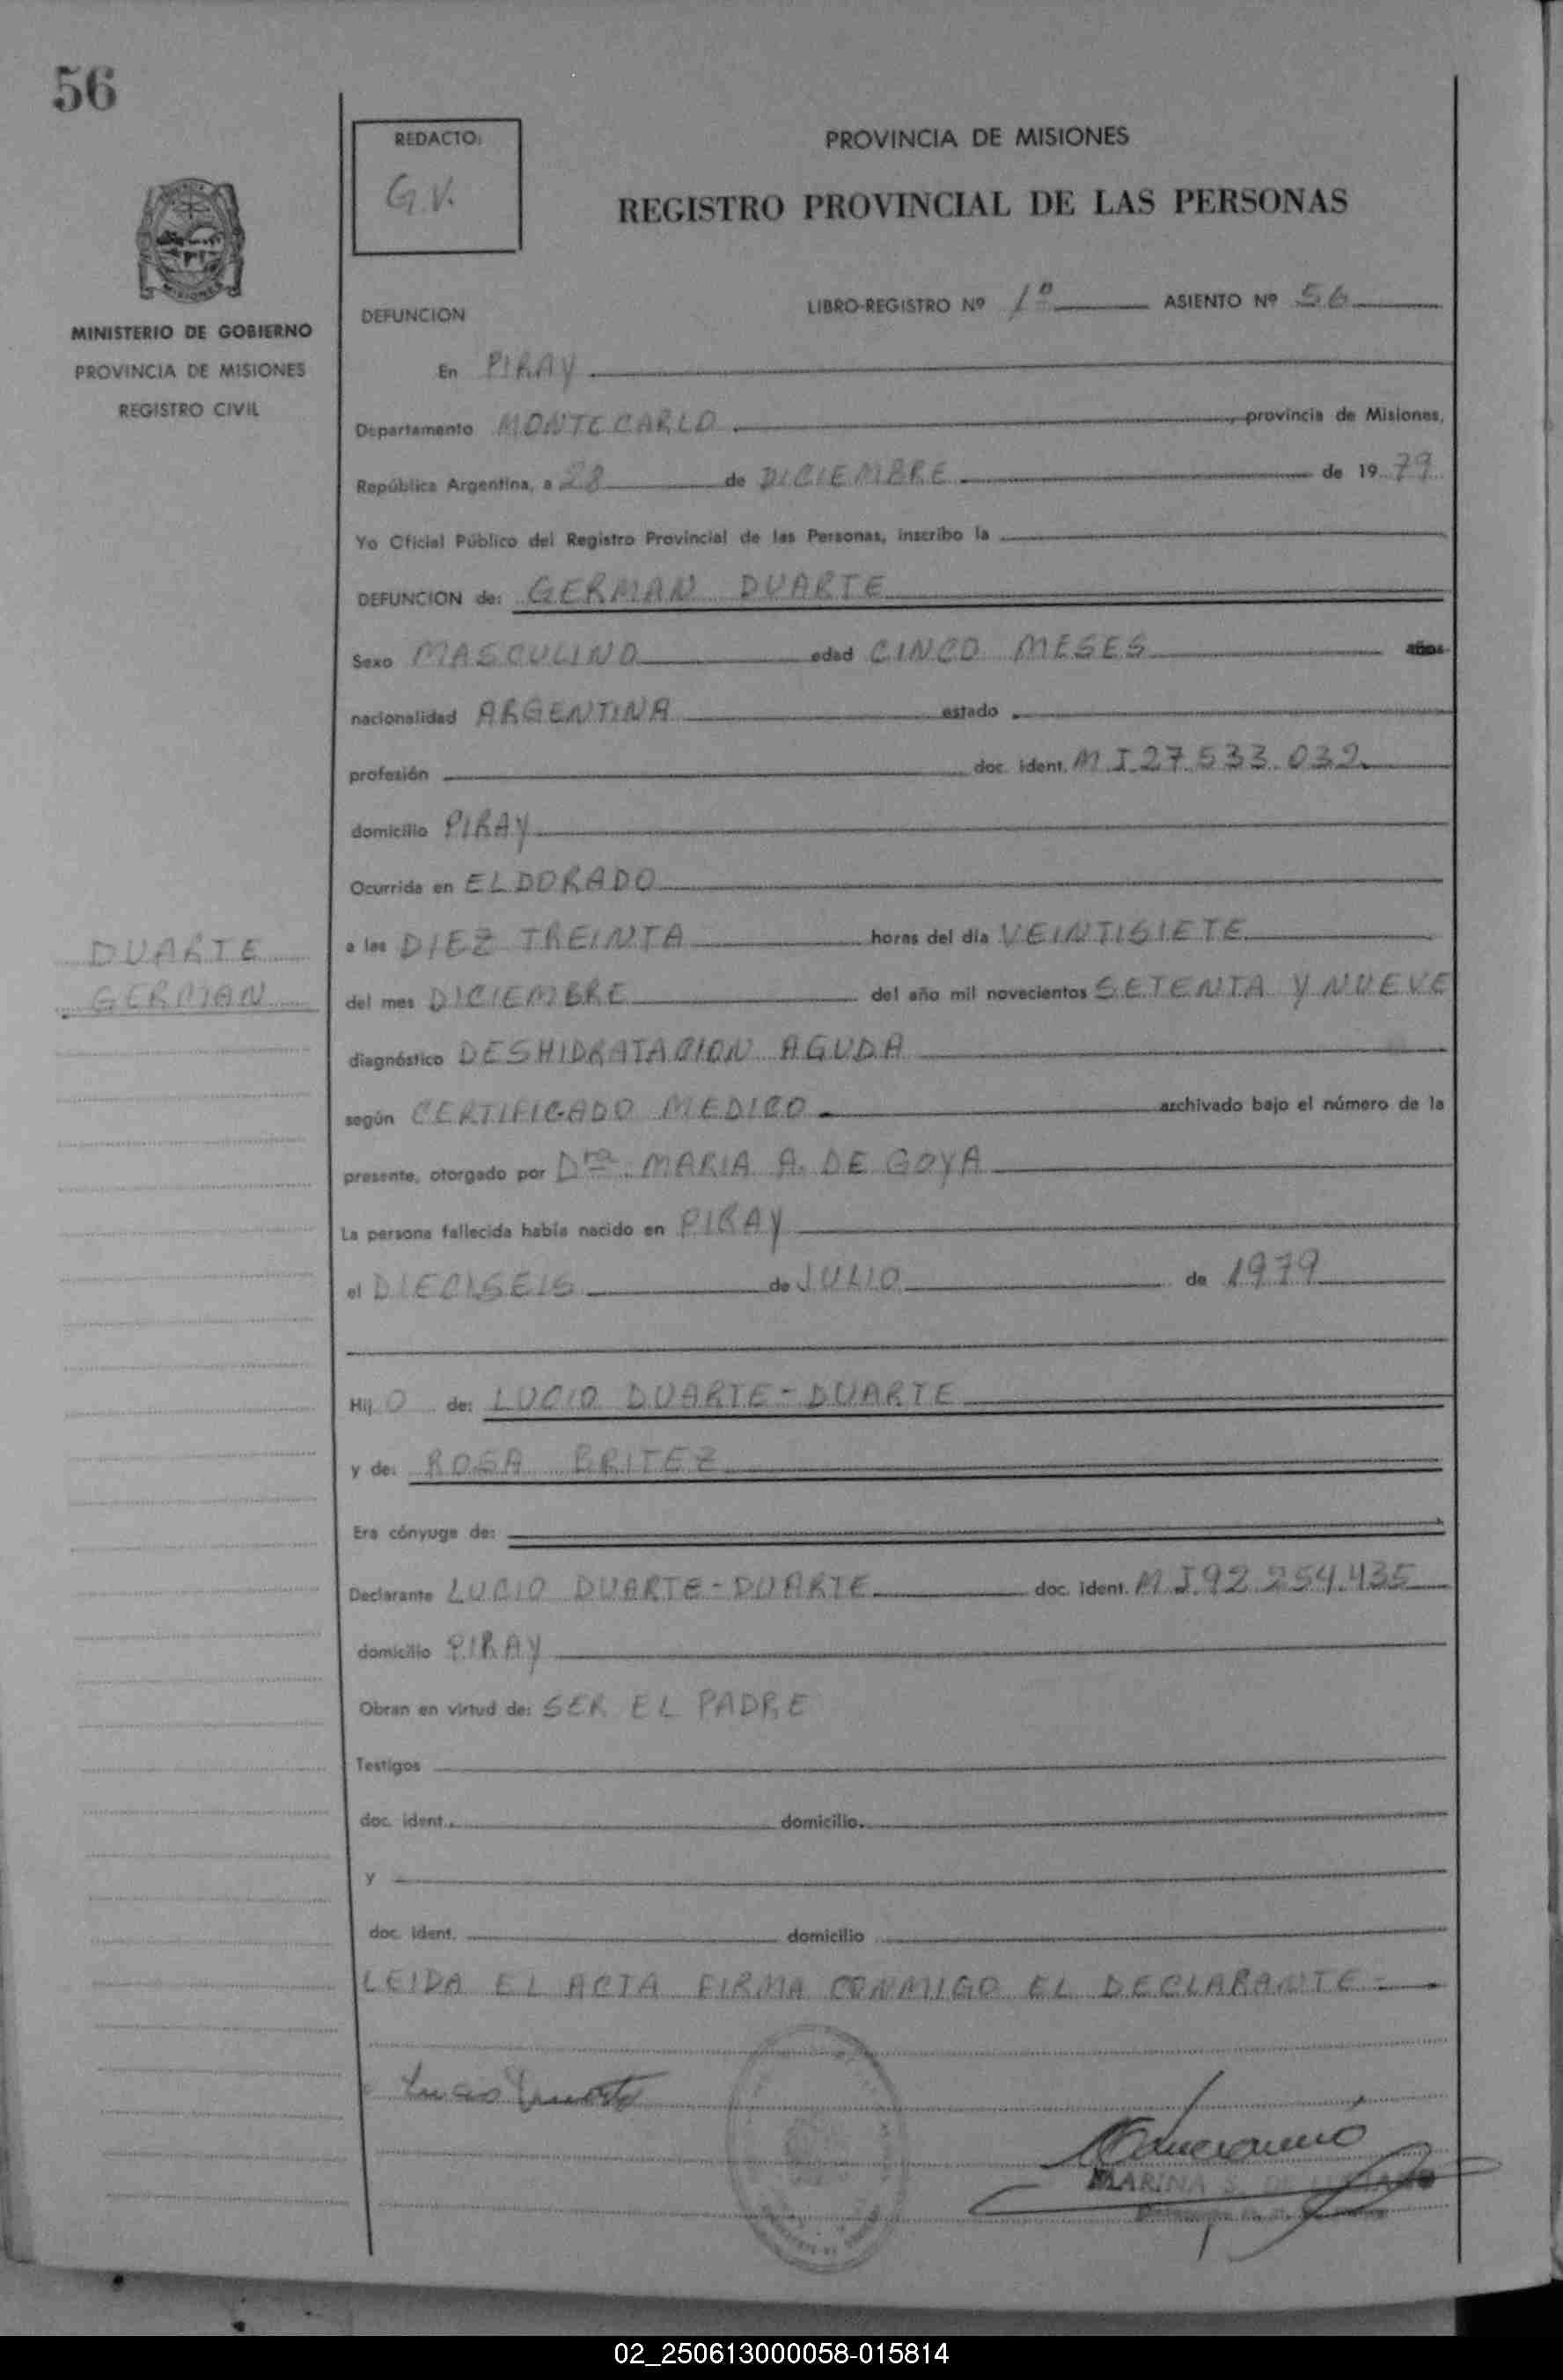 56
REDACTO:
G.V.
PROVINCIA DE MISIONES
REGISTRO PROVINCIAL DE LAS PERSONAS
MISIONES
MINISTERIO DE GOBIERNO
PROVINCIA DE MISIONES
REGISTRO CIVIL
DEFUNCION
LIBRO-REGISTRO Nº 1º ASIENTO Nº 56
En PIRAY
Departamento MONTECARLO, provincia de Misiones,
República Argentina, a 28 de DICIEMBRE de 1979
Yo Oficial Público del Registro Provincial de las Personas, inscribo la
DEFUNCION de: GERMAN DUARTE
Sexo MASCULINO edad CINCO MESES años
nacionalidad ARGENTINA estado
profesión doc. ident. M.I.27.533.032
domicilio PIRAY
Ocurrida en ELDORADO
a las DIEZ TREINTA horas del día VEINTISIETE
DUARTE
GERMAN
del mes DICIEMBRE del año mil novecientos SETENTA Y NUEVE
diagnóstico DESHIDRATACION AGUDA
según CERTIFICADO MEDICO archivado bajo el número de la
presente, otorgado por Dra. MARIA A. DE GOYA
La persona fallecida había nacido en PIRAY
el DIECISEIS de JULIO de 1979
Hij O de: LUCIO DUARTE-DUARTE
y de: ROSA BRITEZ
Era cónyuge de:
Declarante LUCIO DUARTE-DUARTE doc. ident. M.I.92.254.435
domicilio PIRAY
Obran en virtud de: SER EL PADRE
Testigos
doc. ident. domicilio
y
doc. ident. domicilio
LEIDA EL ACTA FIRMA CONMIGO EL DECLARANTE-
Lucio Duarte
MARINA S. DE
02_250613000058-015814